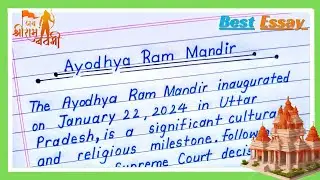 जय
श्री राम
Best Essay
Ayodhya Ram Mandir
The Ayodhya Ram Mandir inaugurated
on January 22, 2024 in Uttar
Pradesh, is a significant cultura
and religious milestone. follow
Supreme Court decis